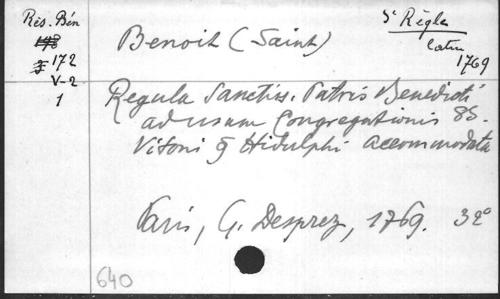 Rés. Bén
S^t Règle
148
Benoit (Saint)
latin
J 172
1769
V-2
1
Regula Sanctiss. Patris Benedicti
ad usum Congregationis SS.
Vitoni & Hidulphi accommodata
Paris, G. Desprez, 1769. 32°
640